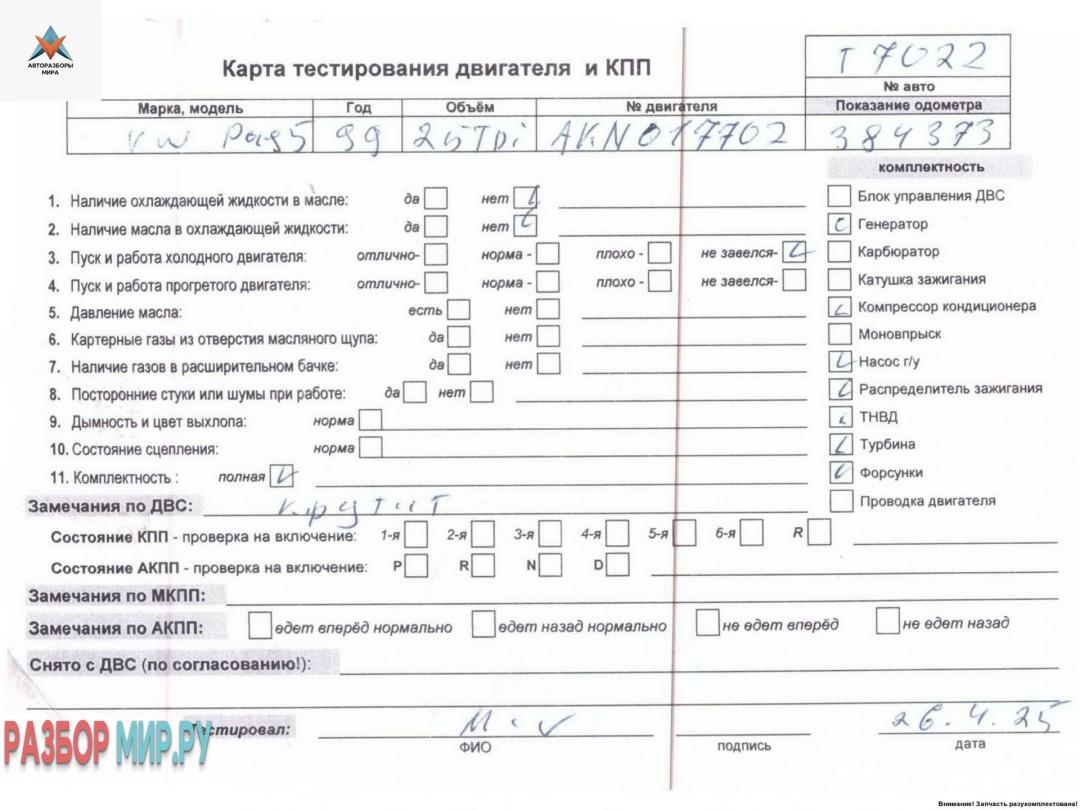 АВТОРАЗБОРЫ
МИРА
Карта тестирования двигателя и КПП
Т 7022
№ авто
Марка, модель Год Объём № двигателя Показание одометра
VW Pas5 99 25TDi AKN017702 384373
комплектность
1. Наличие охлаждающей жидкости в масле: да нет
Блок управления ДВС
2. Наличие масла в охлаждающей жидкости: да нет
Генератор
3. Пуск и работа холодного двигателя: отлично- норма - плохо - не завелся-
Карбюратор
4. Пуск и работа прогретого двигателя: отлично- норма - плохо - не завелся-
Катушка зажигания
5. Давление масла: есть нет
Компрессор кондиционера
6. Картерные газы из отверстия масляного щупа: да нет
Моновпрыск
7. Наличие газов в расширительном бачке: да нет
Насос г/у
8. Посторонние стуки или шумы при работе: да нет
Распределитель зажигания
9. Дымность и цвет выхлопа: норма
ТНВД
10. Состояние сцепления: норма
Турбина
11. Комплектность : полная
Форсунки
Замечания по ДВС: крутит
Проводка двигателя
Состояние КПП - проверка на включение: 1-я 2-я 3-я 4-я 5-я 6-я R
Состояние АКПП - проверка на включение: P R N D
Замечания по МКПП:
Замечания по АКПП: едет вперёд нормально едет назад нормально не едет вперёд не едет назад
Снято с ДВС (по согласованию!):
РАЗБОР МИР.РУ
Тестировал: 26.4.25
ФИО подпись дата
Внимание! Запчасть разукомплектована!